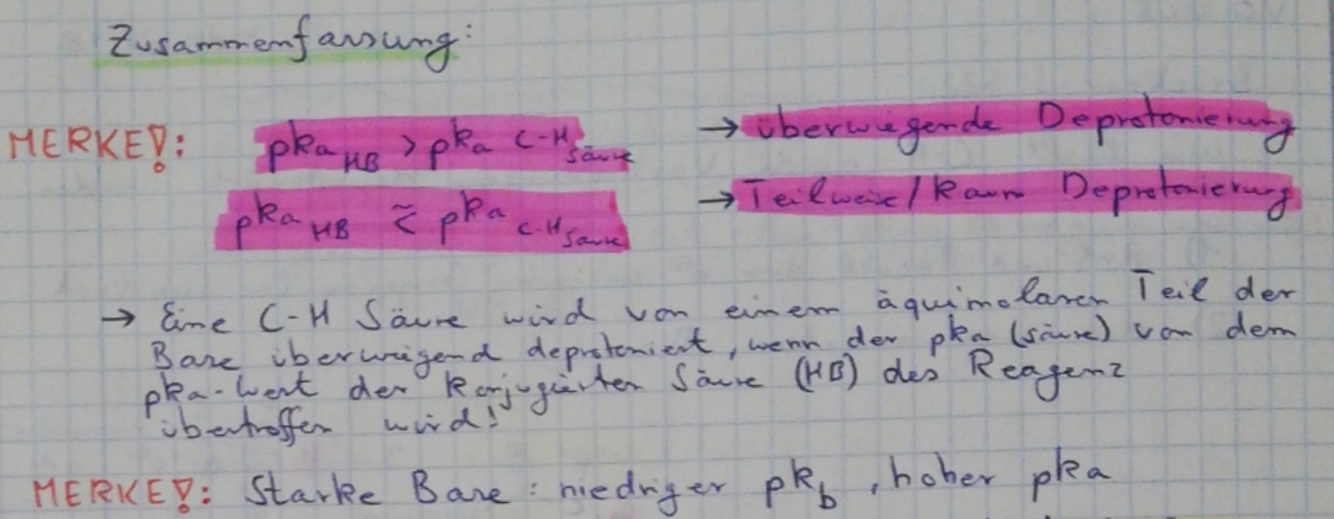 Zusammenfassung:
MERKE!: pka HB > pka C-H Säure → überwiegende Deprotonierung
pka HB ≈ pka C-H Säure → Teilweise/kaum Deprotonierung
→ Eine C-H Säure wird von einem äquimolaren Teil der
Base überwiegend deprotoniert, wenn der pka (säure) von dem
pka-Wert der konjugierten Säure (HB) des Reagenz
übertroffen wird!
MERKE!: Starke Base: niedriger pkb, hoher pka